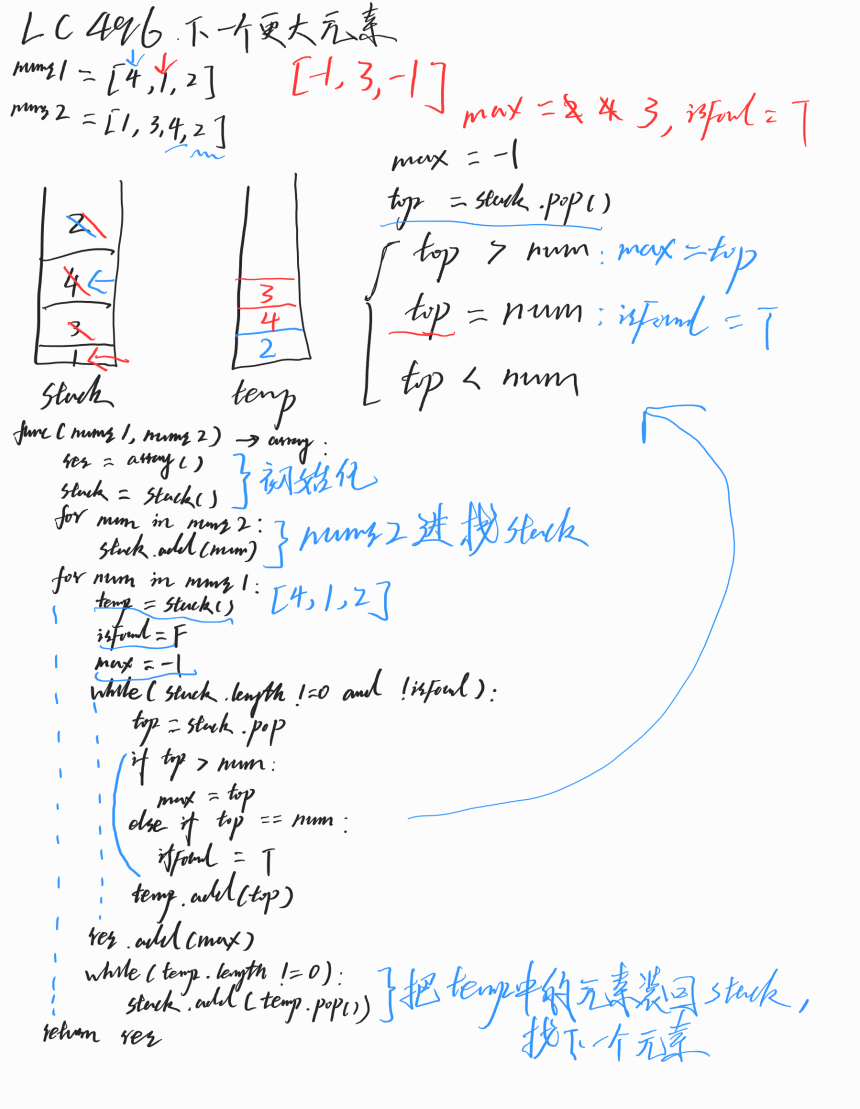 LC 496 下一个更大元素
nums1 = [4, 1, 2]
nums2 = [1, 3, 4, 2]
[-1, 3, -1]
max = 2 4 3, isFoud = T
max = -1
top = stack.pop()
top > num : max = top
top = num : isFound = T
top < num
2
4
3
1
stack
3
4
2
temp
func(nums1, nums2) → array:
res = array()
stack = stack()
} 初始化
for num in nums2:
stack.add(num)
} nums2 进栈 stack
for num in nums1: [4, 1, 2]
temp = stack()
isFound = F
max = -1
while(stack.length != 0 and !isFoud):
top = stack.pop
if top > num:
max = top
else if top == num:
isFound = T
temp.add(top)
res.add(max)
while(temp.length != 0):
stack.add(temp.pop())
} 把temp中的元素装回stack,
找下一个元素
return res